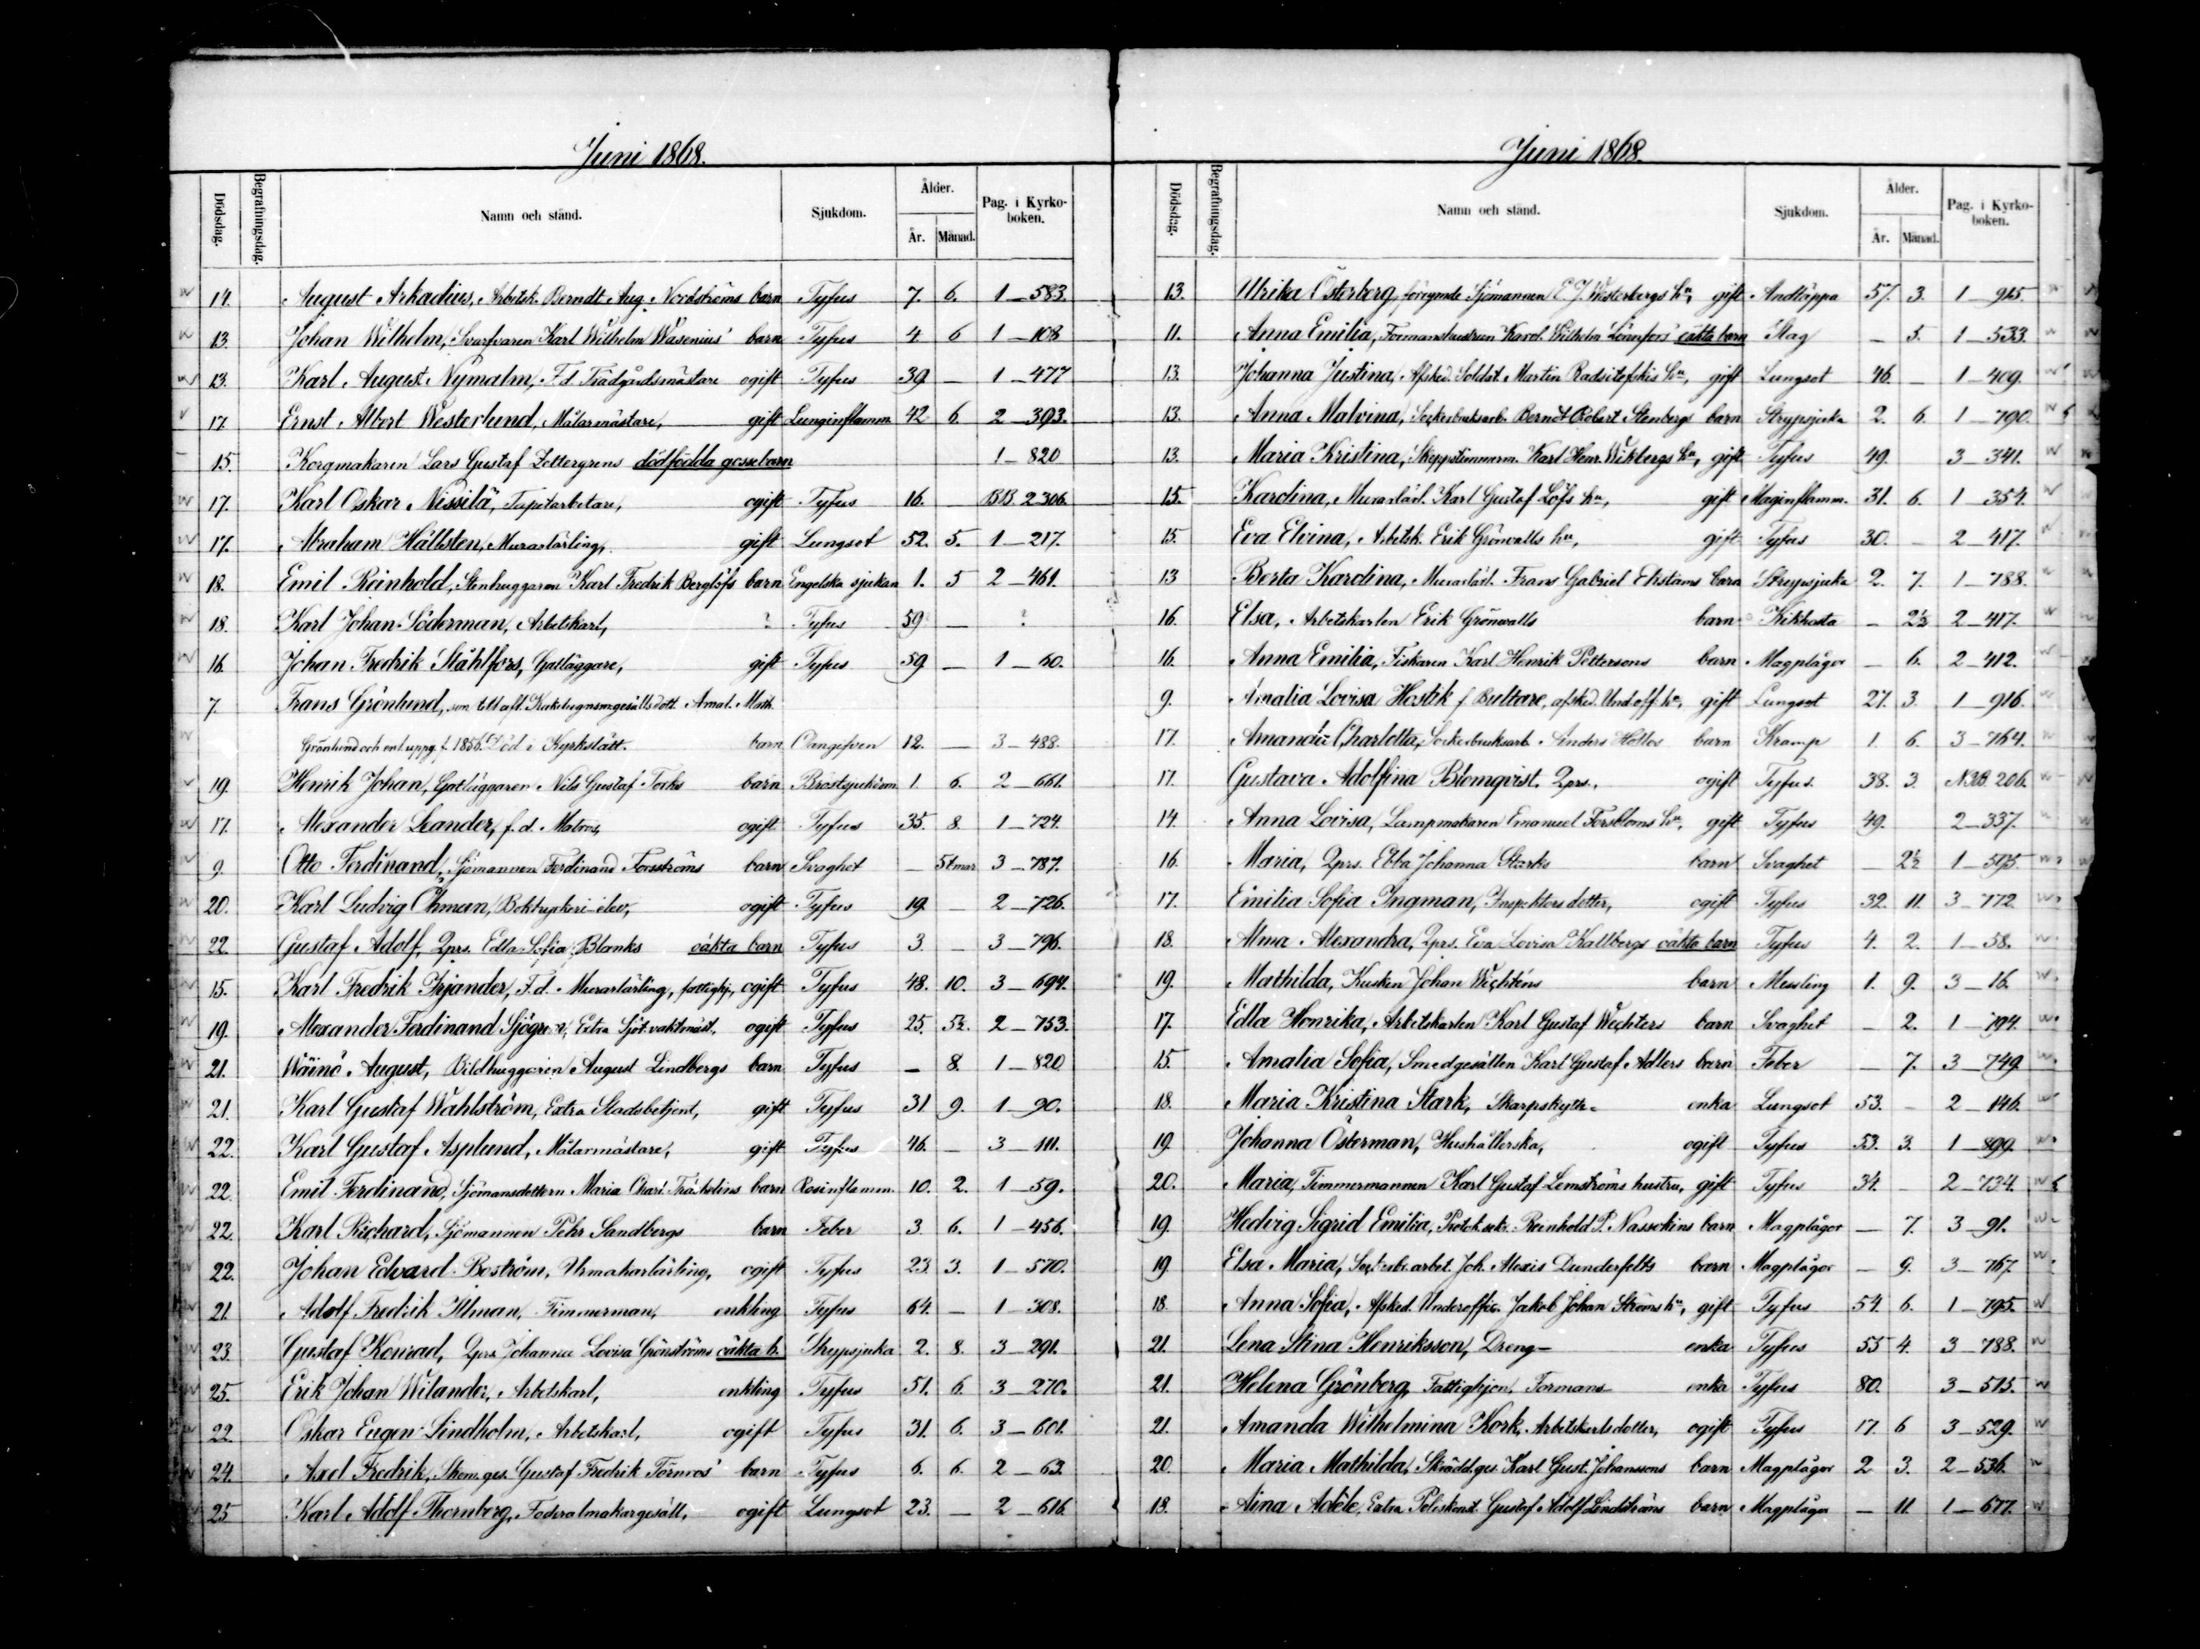 Juni 1868.
Dödsdag. Begrafningsdag. Namn och stånd. Sjukdom. Ålder. År. Månad. Pag. i Kyrko-boken.
14. August Arkadius, Arbetsk. Berndt Aug. Nordströms barn Tyfus 7. 6. 1 — 583.
13. Johan Wilhelm, Svarfvaren Karl Wilhelm Wasenius' barn Tyfus 4. 6 1 — 108
13. Karl August Nymalm, F.d. Trädgårdsmästare ogift Tyfus 39. — 1 — 477
17. Ernst Albert Westerlund, Målarmästare, gift Lunginflamm. 42 6. 2 — 393.
15. Korgmakaren Lars Gustaf Zettergrens dödfödda gossebarn 1 — 820
17. Karl Oskar Nissilä, Tapetarbetare, ogift Tyfus 16. — BB. 2 306.
17. Abraham Hällsten, Murarlärling, gift Lungsot 52. 5. 1 — 217.
18. Emil Reinhold, Stenhuggaren Karl Fredrik Berglöfs barn Engelska sjukan 1. 5 2 — 461.
18. Karl Johan Söderman, Arbetskarl, ? Tyfus 59 — ?
16. Johan Fredrik Ståhlfors, Gatläggare, gift Tyfus 59 — 1 — 60.
7. Frans Grönlund, son till afl. Kakelugnsm.gesälls dott. Amal. Math.
Grönlund och enl. uppg. f. 1856. Död i Kyrkslätt. barn Oangifven 12. — 3 — 488.
19. Henrik Johan, Gatläggaren Nils Gustaf Torks barn Bröstsjukdom 1. 6. 2 — 661.
17. Alexander Leander, f.d. Matros, ogift Tyfus 35. 8. 1 — 724.
9. Otto Ferdinand, Sjömannen Ferdinand Forsströms barn Svaghet — 3 — 787.
20. Karl Ludvig Öhman, Boktryckeri-elev, ogift Tyfus 19. — 2 — 726.
22. Gustaf Adolf, Qprs. Edla Sofia Blanks oäkta barn Tyfus 3. — 3 — 796.
15. Karl Fredrik Irjander, F.d. Murarlärling, fattighj., ogift Tyfus 48. 10. 3 — 694.
19. Alexander Ferdinand Sjögren, Extra Sjöt.vaktmäst. ogift Tyfus 25. 5½. 2 — 753.
21. Wäinö August, Bildhuggaren August Lindbergs barn Tyfus — 8. 1 — 820
21. Karl Gustaf Wahlström, Extra Stadsbetjent, gift Tyfus 31 9. 1 — 90.
22. Karl Gustaf Asplund, Målarmästare, gift Tyfus 46. — 3 — 111.
22. Emil Ferdinand, Sjömansdottern Maria Charl. Träskelins barn Rosinflamm. 10. 2. 1 — 59.
22. Karl Richard, Sjömannen Pehr Sandbergs barn Feber 3. 6. 1 — 456.
22. Johan Edvard Boström, Urmakarlärling, ogift Tyfus 23. 3. 1 — 570.
21. Adolf Fredrik Illman, Timmerman, enkling Tyfus 64. — 1 — 308.
23. Gustaf Konrad, Qprs Johanna Lovisa Grönströms oäkta b. Strypsjuka 2. 8. 3 — 291.
25. Erik Johan Wilander, Arbetskarl, enkling Tyfus 51. 6. 3 — 270.
22. Oskar Eugen Lindholm, Arbetskarl, ogift Tyfus 31. 6. 3 — 601.
24. Axel Fredrik, Skom.ges. Gustaf Fredrik Törnros' barn Tyfus 6. 6. 2 — 63.
25 Karl Adolf Thornberg, Foderalmakargesäll, ogift Lungsot 23. — 2 — 616.
Juni 1868.
Dödsdag. Begrafningsdag. Namn och stånd. Sjukdom. Ålder. År. Månad. Pag. i Kyrko-boken.
13. Ulrika Österberg, förrymde Sjömannen E. J. Westerbergs hu, gift Andtäppa 57. 3. 1 — 915
11. Anna Emilia, Formanshustrun Karol. Wilhelm. Lönnfors' oäkta barn Slag — 5. 1 — 533.
13. Johanna Justina, Afsked. Soldat. Martin Radsitefskis hu, gift Lungsot 46. — 1 — 409.
13. Anna Malvina, Sockerbruksarb. Berndt Robert Stenbergs barn Strypsjuka 2. 6. 1 — 790.
13. Maria Kristina, Skeppstimmerm. Karl Henr. Wikbergs hu, gift Tyfus 49. 3 — 341.
15. Karolina, Murarlärl. Karl Gustaf Löfs hu, gift Maginflamm. 31. 6. 1 — 354.
15. Eva Elvina, Arbetsk. Erik Grönvalls hu, gift Tyfus 30. — 2 — 417.
13 Berta Karolina, Murarlärl. Frans Gabriel Ekstams barn Strypsjuka 2. 7. 1 — 788.
16. Elsa, Arbetskarlen Erik Grönvalls barn Kikhosta — 2½ 2 — 417.
16. Anna Emilia, Fiskaren Karl Henrik Pettersons barn Magplågor — 6. 2 — 412.
9. Amalia Lovisa Hostik f. Bultare, afsked. Und.off. hu, gift Lungsot 27. 3. 1 — 916.
17. Amanda Charlotta, Sockerbruksarb. Anders barn Kramp 1. 6. 3 — 764.
17. Gustava Adolfina Blomqvist. Qprs., ogift Tyfus. 38. 3. 206.
14. Anna Lovisa, Lampmakaren Emanuel Forsbloms hu, gift Tyfus 49. 2 — 337.
16. Maria, Qprs. Ebba Johanna Starks barn Svaghet — 2½ 1 — 595.
17. Emilia Sofia Ingman, Inspektors dotter, ogift Tyfus 32. 11. 3 — 772.
18. Alma Alexandra, Qprs. Eva Lovisa Kallbergs oäkta barn Tyfus 4. 2. 1 — 58.
19. Mathilda, Kusken Johan Wichtens barn Messling 1. 9. 3 — 16.
17. Edla Henrika, Arbetskarlen Karl Gustaf Wechters barn Svaghet — 2. 1 — 194.
15. Amalia Sofia, Smedgesällen Karl Gustaf Adlers barn Feber — 7. 3 — 749.
18. Maria Kristina Stark, Skarpskytte- enka Lungsot 53. — 2 — 146.
19. Johanna Österman, Hushållerska, ogift Tyfus 53. 3. 1 — 899.
20. Maria, Timmermannen Karl Gustaf Lemströms hustru, gift Tyfus 34. — 2 — 734.
19. Hedvig Sigrid Emilia, Protok.sekr. Reinhold P. Nassokins barn Magplågor — 7. 3 — 91.
19 Elsa Maria, Joh. Alexis Dunderfelts barn Magplågor — 9. 3 — 767.
18. Anna Sofia, Afsked. Underoffic. Jakob Johan Ströms hu, gift Tyfus 54. 6. 1 — 795.
21. Lena Stina Henriksson, Dreng- enka Tyfus 55 4. 3 — 788.
21. Helena Grönberg, Fattighjon, Formans- enka Tyfus 80. 3 — 515.
21. Amanda Wilhelmina Kork, Arbetskarlsdotter, ogift Tyfus 17. 6 3 — 529.
20. Maria Mathilda, Skrädd.ges. Karl Gust. Johanssons barn Magplågor 2 3. 2 — 536.
18. Aina Adèle, Extra Poliskonst. Gustaf Adolf Lindströms barn Magplågor — 11. 1 — 677.